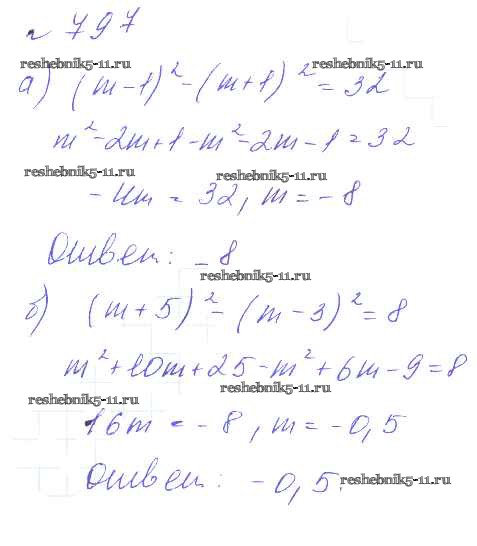 № 797
reshebnik5-11.ru reshebnik5-11.ru
а) (m-1)² - (m+1)² = 32
m² - 2m + 1 - m² - 2m - 1 = 32
reshebnik5-11.ru reshebnik5-11.ru
-4m = 32, m = -8
Ответ: -8
reshebnik5-11.ru
б) (m+5)² - (m-3)² = 8
m² + 10m + 25 - m² + 6m - 9 = 8
reshebnik5-11.ru reshebnik5-11.ru
16m = -8, m = -0,5
Ответ: -0,5.
reshebnik5-11.ru